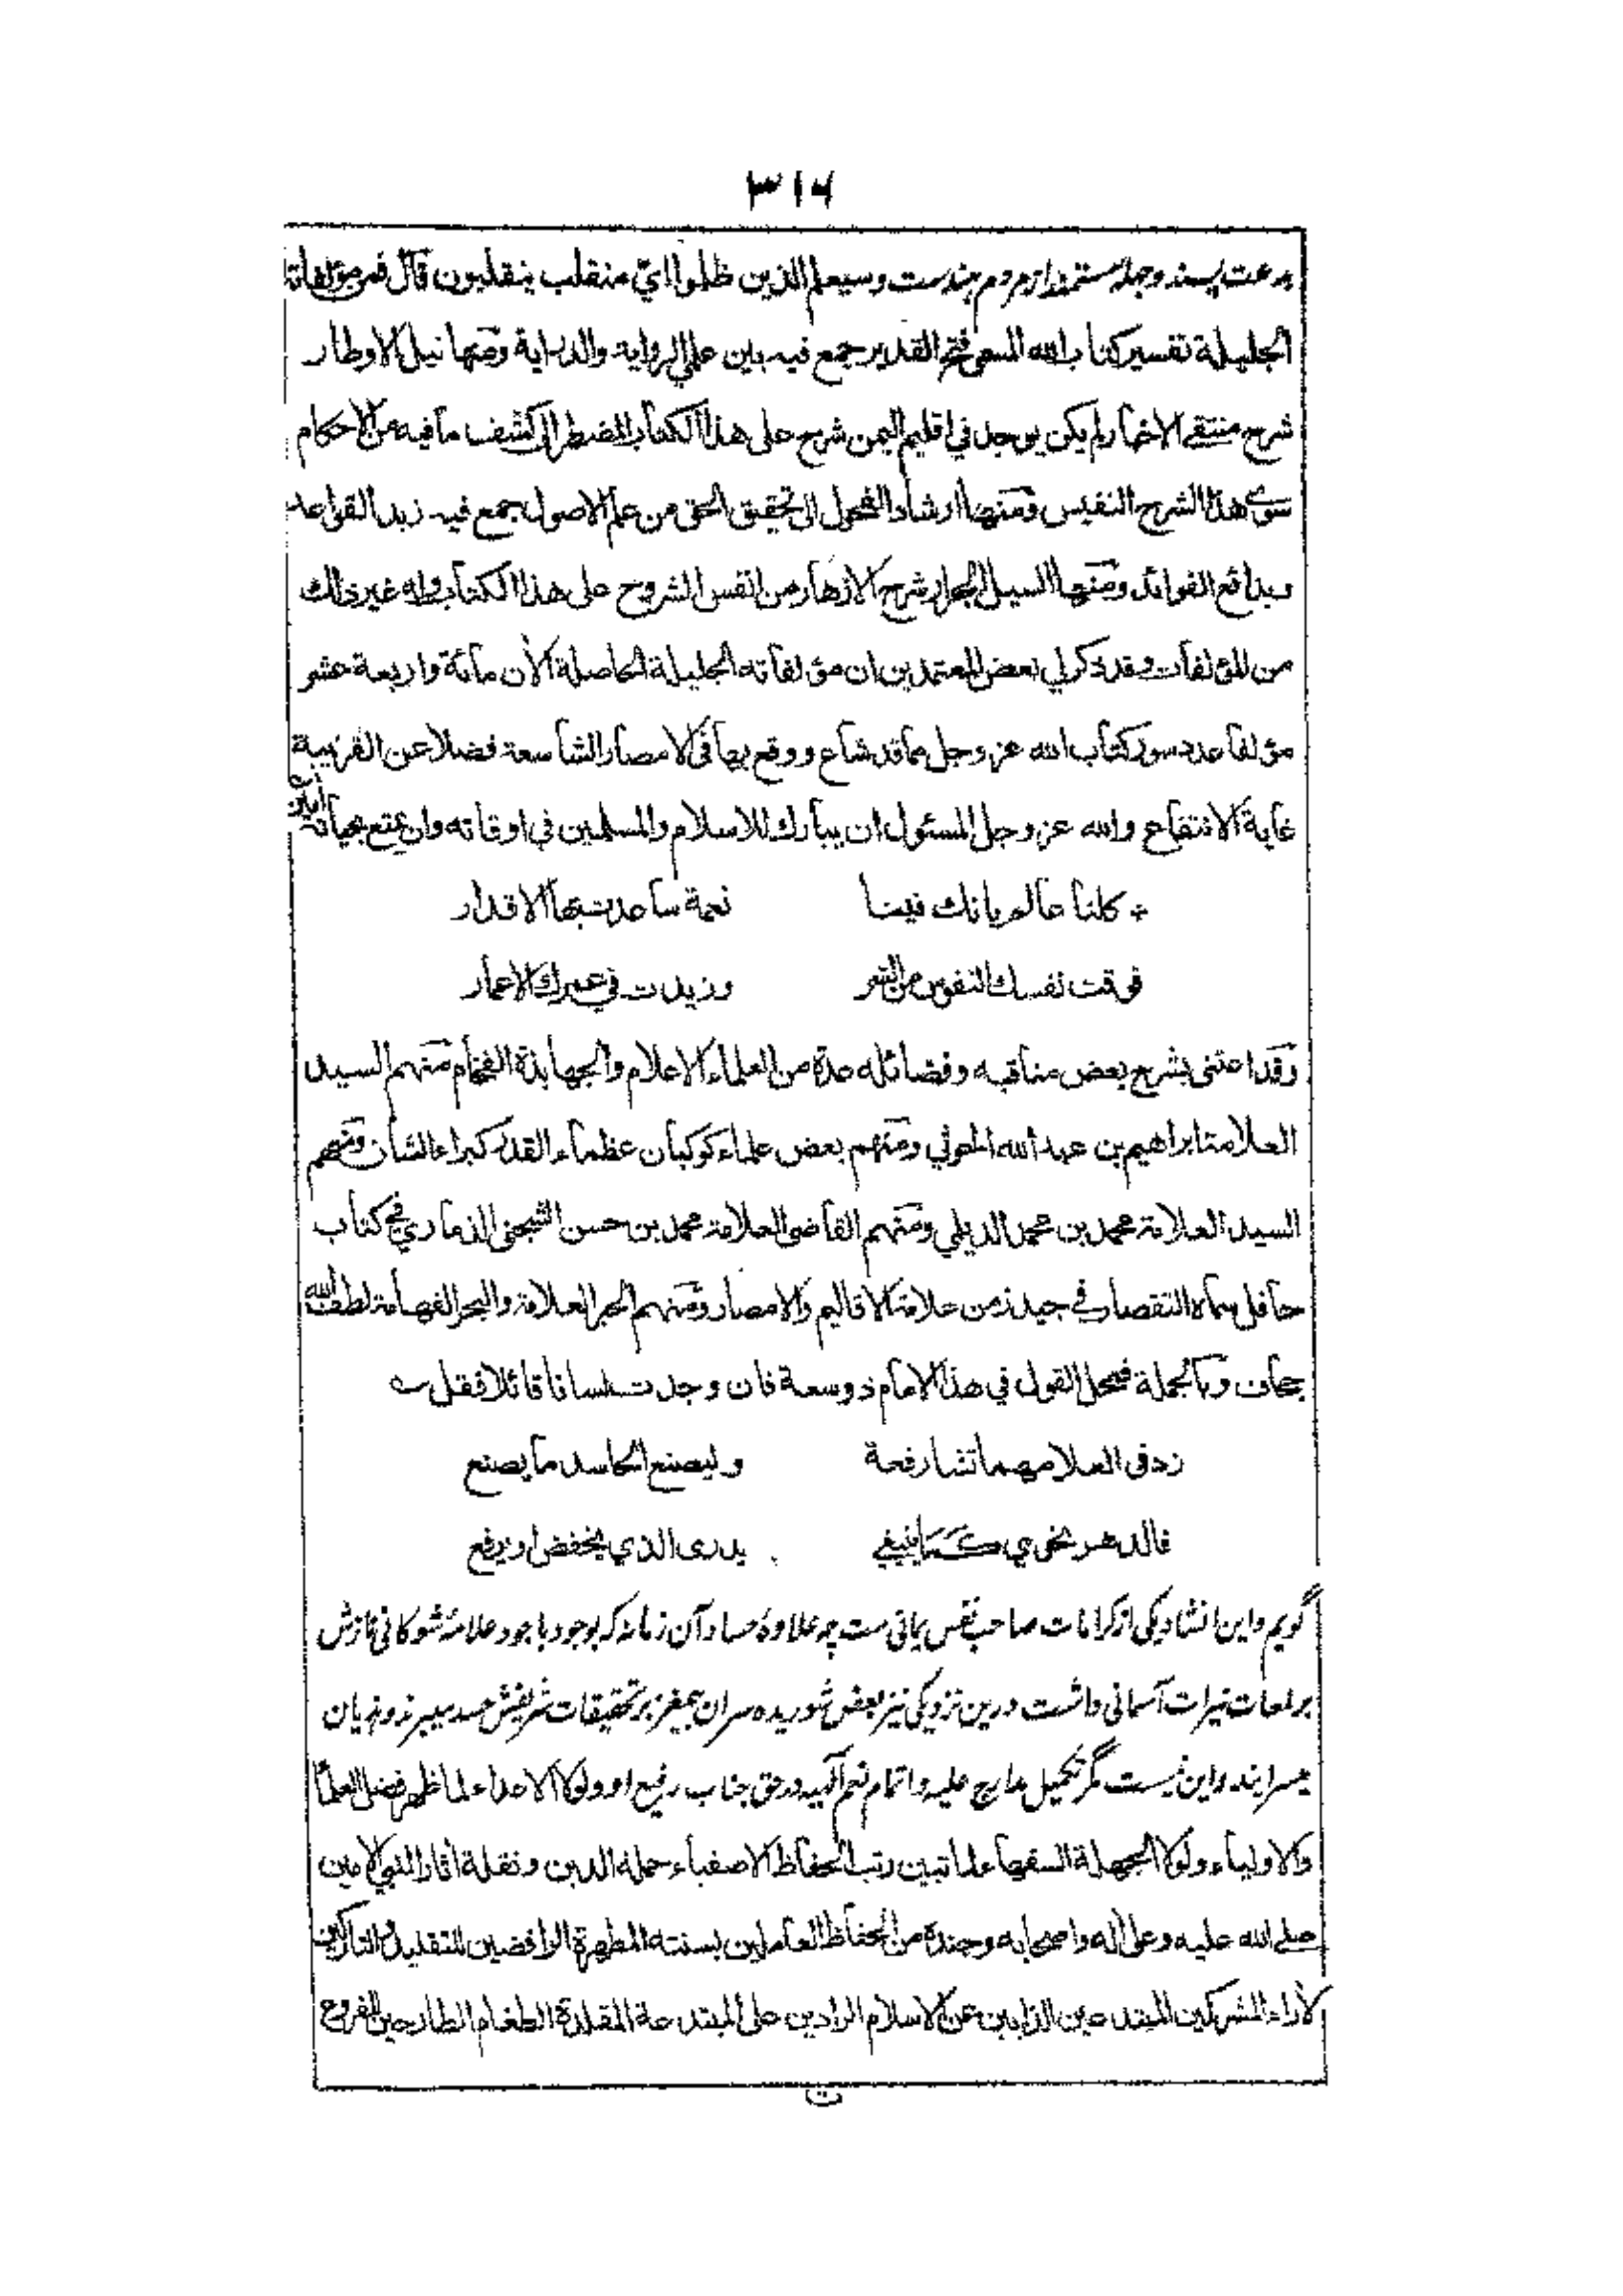 ٣١٦
بدعت پسند وجهلهٔ مستمند از مردم هندست وسيعلم الذين ظلموا اي منقلب ينقلبون قال فمن مؤلفاته
الجليلة تفسير كتاب الله المسمى فتح القدير جمع فيه بين علمي الرواية والدراية ومنها نيل الاوطار
شرح منتقى الاخبار لم يكن يوجد في اقليم اليمن شرح على هذا الكتاب المضطر الى كشف ما فيه من الاحكام
سوى هذا الشرح النفيس ومنها ارشاد الفحول الى تحقيق الحق من علم الاصول جمع فيه زبد القواعد
وبدائع الفوائد ومنها السيل الجرار شرح الازهار من انفس الشروح على هذا الكتاب وله غير ذلك
من المؤلفات وقد ذكر لي بعض المعتمدين ان مؤلفاته الجليلة الحاصلة الأن مائة واربعة عشر
مؤلفا عدد سور كتاب الله عز وجل مما قد شاع ووقع بها في الامصار الشاسعة فضلا عن القريبة
غاية الانتفاع والله عز وجل المسئول ان يبارك للاسلام والمسلمين في اوقاته وان يمتع بحياته امين
كلنا عالم بانك فينا نعمة ساعدت بها الاقدار
فوقت نفسك النفوس من الشر وزيدت في عمرك الاعمار
وقد اعتنى بشرح بعض مناقبه وفضائله عدة من العلماء الاعلام والجهابذة الفخام منهم السيد
العلامة ابراهيم بن عبد الله الحوثي ومنهم بعض علماء كوكبان عظماء القدر كبراء الشان ومنهم
السيد العلامة محمد بن محمد الديلمي ومنهم القاضى العلامة محمد بن حسن الشجني الذماري في كتاب
حافل سماه التقصار في جيد زمن علامة الاقاليم والامصار ومنهم الحبر العلامة والبحر الفهامة لطف الله
جحاف وبالجملة فمحل القول في هذا الامام ذو سعة فان وجدت لسانا قائلا فقل
زد في العلا مهما تشا رفعة وليصنع الحاسد ما يصنع
فالدهر نحوي كما ينبغي يدرى الذي يخفض او يرفع
گويم واين انشاد يكى از كرامات صاحب نفس يمانى ست چه علاوهٔ حساد آن زمانه كه بوجود باجود علامهٔ شوكانى نازش
بر لمعات نيرات آسمانى داشت درين نزديكى نيز بعض شوريده سران بيمغز بر تحقيقات شريفش حسد ميبرند وهذيان
ميسرايند واين نيست مگر تكميل مدارج عليه واتمام نعم آلهيه در حق جناب رفيع او ولولا الاعداء لما ظهر فضل العلما
والاولياء ولولا الجهلة السفهاء لما تبين رتب الحفاظ الاصفياء حملة الدين ونقلة اثار النبي الامين
صلى الله عليه وعلى اله واصحابه وجنده من الحفاظ العاملين بسنته المطهرة الرافضين للتقليد التاركين
لأراء المشركين المبتدعين الذابين عن الاسلام الرادين على المبتدعة المقلدة الطغام الطارحين للفروع
ت